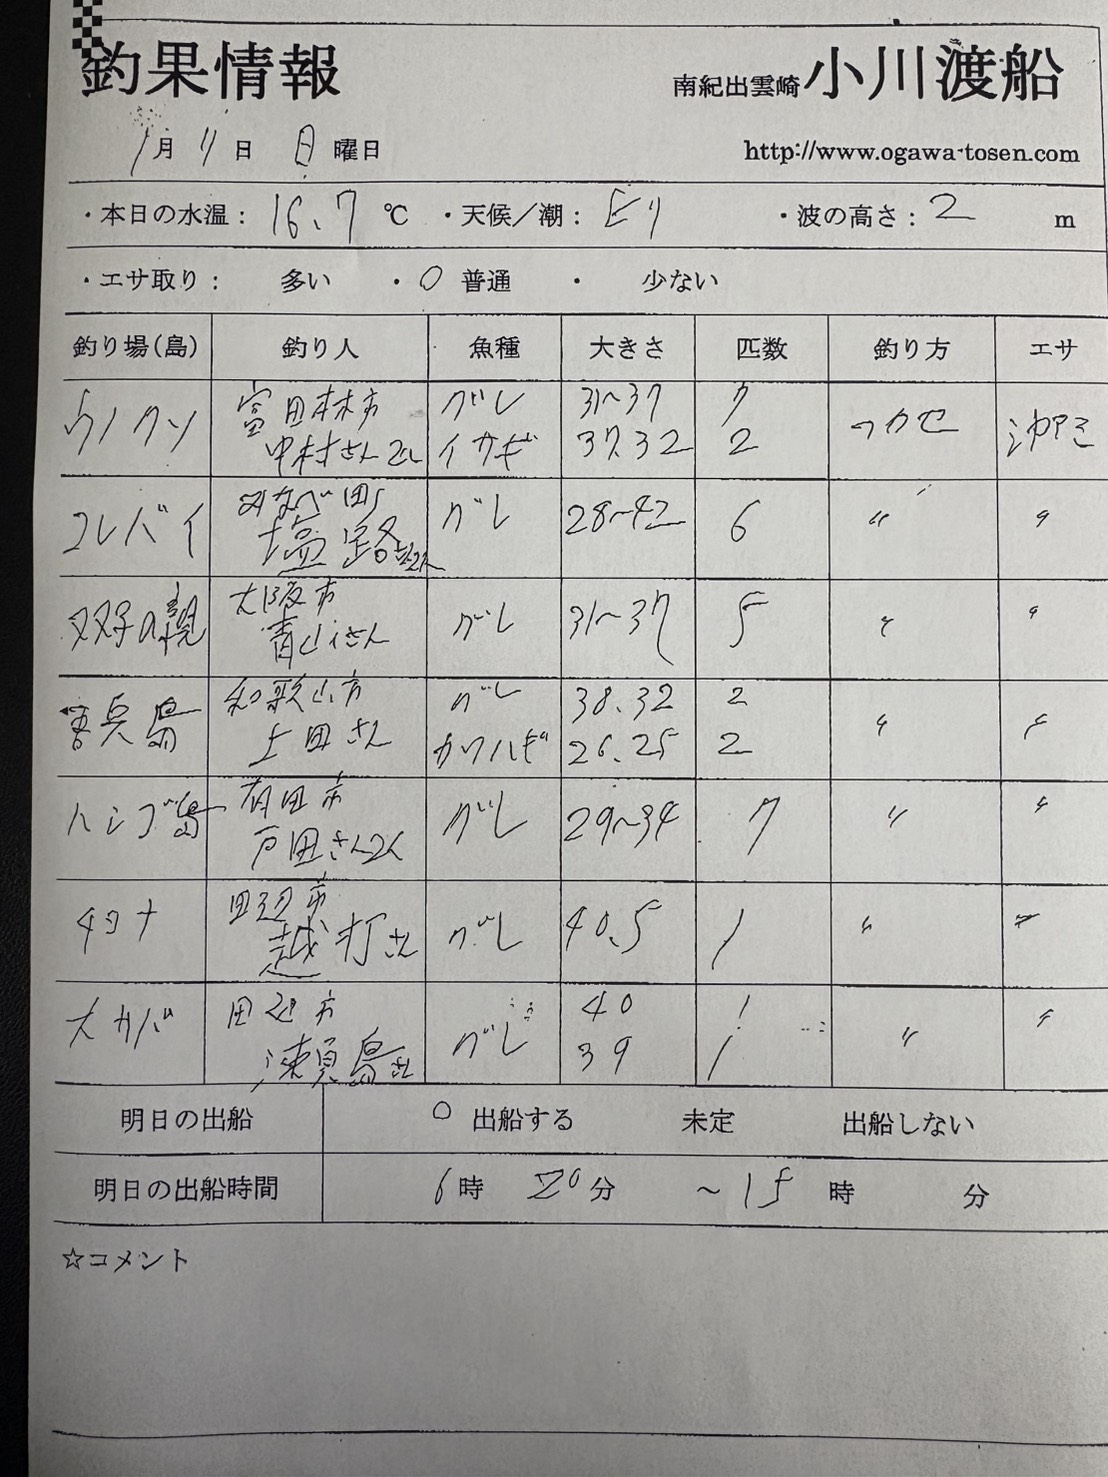 釣果情報
南紀出雲崎小川渡船
1月11日 日曜日
http://www.ogawa-tosen.com
・本日の水温： 16.7 ℃ ・天候／潮： ・波の高さ： 2 m
・エサ取り： 多い ・○ 普通 ・ 少ない
釣り場(島) 釣り人 魚種 大きさ 匹数 釣り方 エサ
ウノクソ 富田林市 グレ 31〜37 7 フカセ 沖アミ
中村さん 2人 イサギ 37.32 2
コレバイ みなべ町 グレ 28〜42 6 〃 〃
塩路さん2人
双子の親 大阪市 グレ 31〜37 5 〃 〃
青山さん
吾兵島 和歌山市 グレ 38.32 2 〃 〃
上田さん カワハギ 26.25 2
ハンゴ島 有田市 グレ 29〜34 7 〃 〃
戸田さん2人
田辺市 グレ 40.5 1 〃 〃
越打さん
大カバ 田辺市 グレ 40 1 〃 〃
瀬島さん 39 1
明日の出船 ○ 出船する 未定 出船しない
明日の出船時間 6時 20分 〜15 時 分
☆コメント